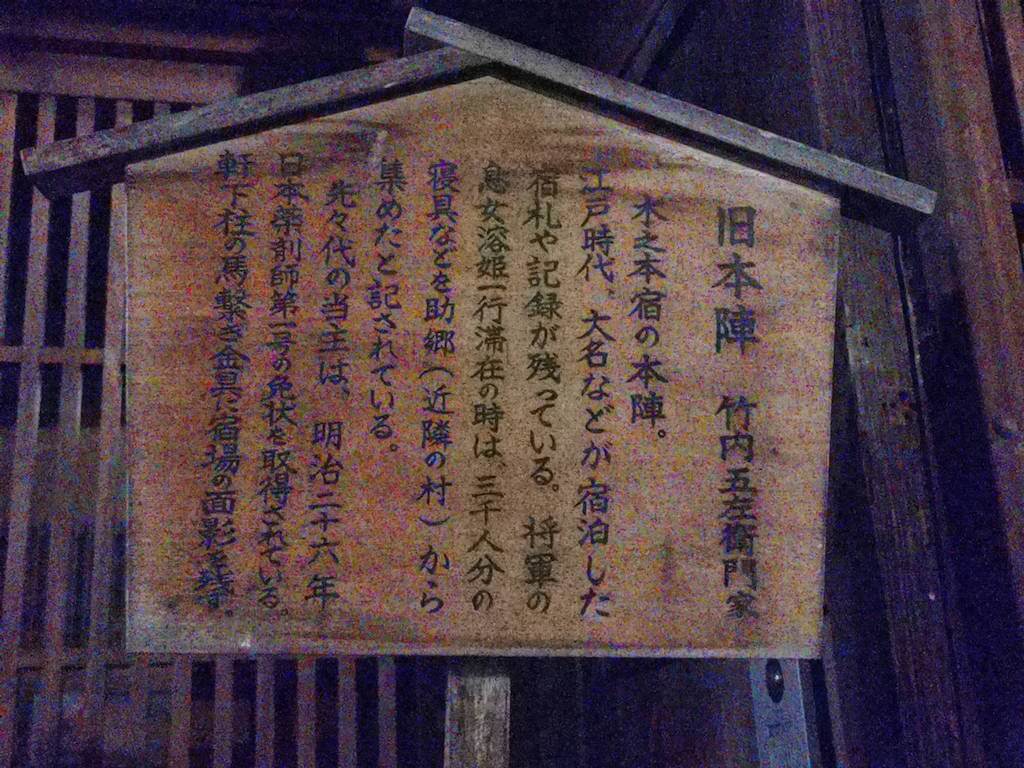 旧本陣 竹内五左衛門家
木之本宿の本陣。
江戸時代、大名などが宿泊した
宿札や記録が残っている。将軍の
息女溶姫一行滞在の時は、三千人分の
寝具などを助郷(近隣の村)から
集めたと記されている。
先々代の当主は、明治二十六年
日本薬剤師第一号の免状を取得されている。
軒下柱の馬繋ぎ金具に宿場の面影を残す。